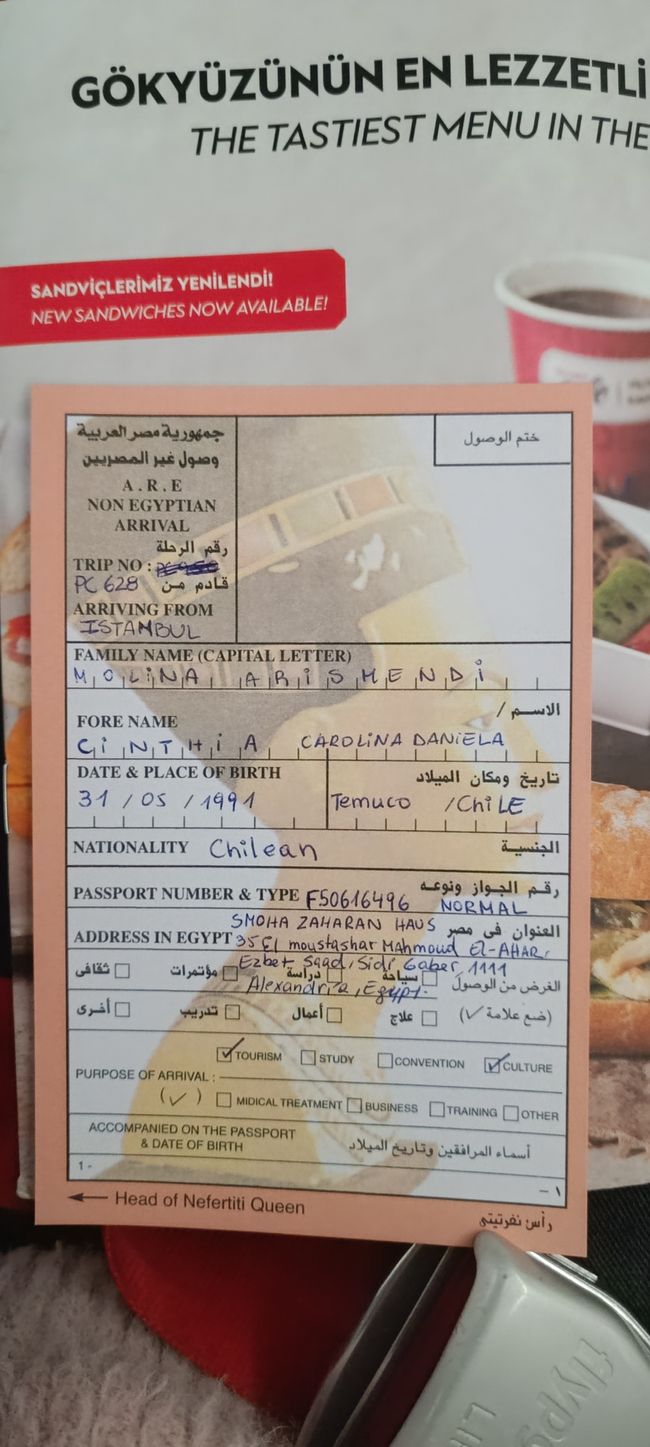 GÖKYÜZÜNÜN EN LEZZETLİ
THE TASTIEST MENU IN THE
SANDVİÇLERİMİZ YENİLENDİ!
NEW SANDWICHES NOW AVAILABLE!
جمهورية مصر العربية
وصول غير المصريين
A . R . E
NON EGYPTIAN
ARRIVAL
ختم الوصول
رقم الرحلة
TRIP NO :
PC 628 قادم من
ARRIVING FROM
ISTANBUL
FAMILY NAME (CAPITAL LETTER)
MOLINA ARISMENDI
الاسم /
FORE NAME
CINTHIA CAROLINA DANIELA
DATE & PLACE OF BIRTH تاريخ ومكان الميلاد
31 / 05 / 1991 Temuco / CHILE
NATIONALITY Chilean الجنسية
PASSPORT NUMBER & TYPE F50616496 رقم الجواز ونوعه
NORMAL
SMOHA ZAHARAN HAUS العنوان فى مصر
ADDRESS IN EGYPT 35 El moustashar MAhmoud El-AHAR,
Ezbet Saad, Sidi Gaber, 1111
ثقافى مؤتمرات دراسة سياحة الغرض من الوصول
Alexandria, Egypt.
أخرى تدريب أعمال علاج (ضع علامة ✓)
TOURISM STUDY CONVENTION CULTURE
PURPOSE OF ARRIVAL :
(✓) MIDICAL TREATMENT BUSINESS TRAINING OTHER
ACCOMPANIED ON THE PASSPORT
& DATE OF BIRTH أسماء المرافقين وتاريخ الميلاد
١٠ ١ –
← Head of Nefertiti Queen رأس نفرتيتى
flypg